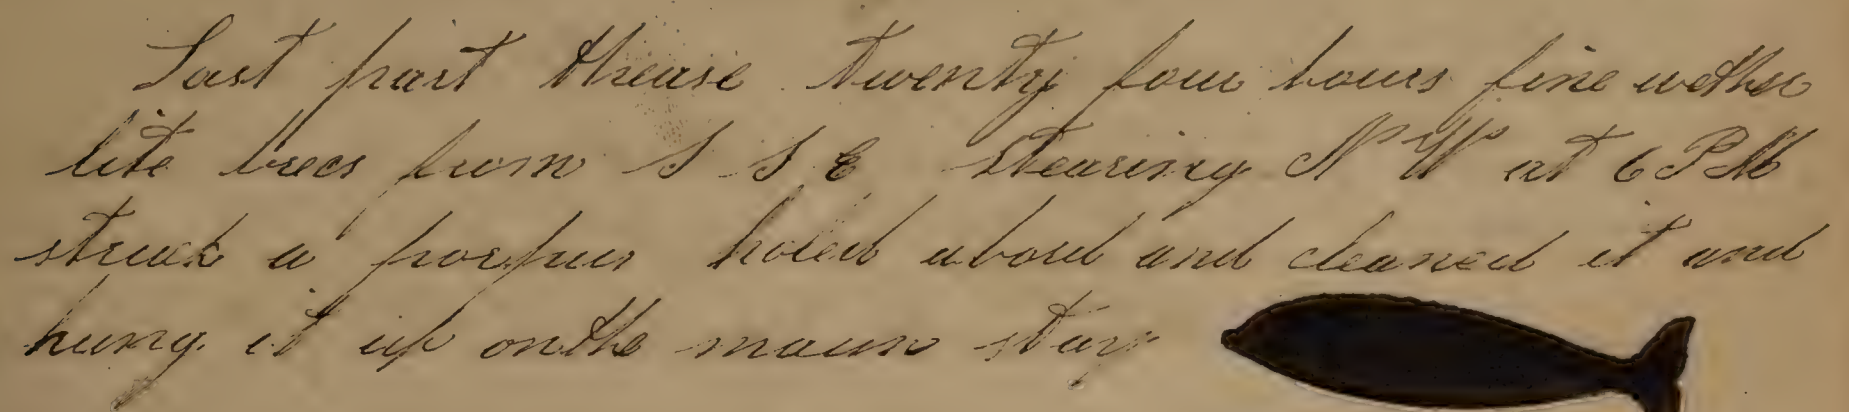 Last part thease twenty four hours fine wether
lite brees from S S E stearing N W at 6 PM
struck a porpus holed abord and cleaned it and
hung it up on the maun stay